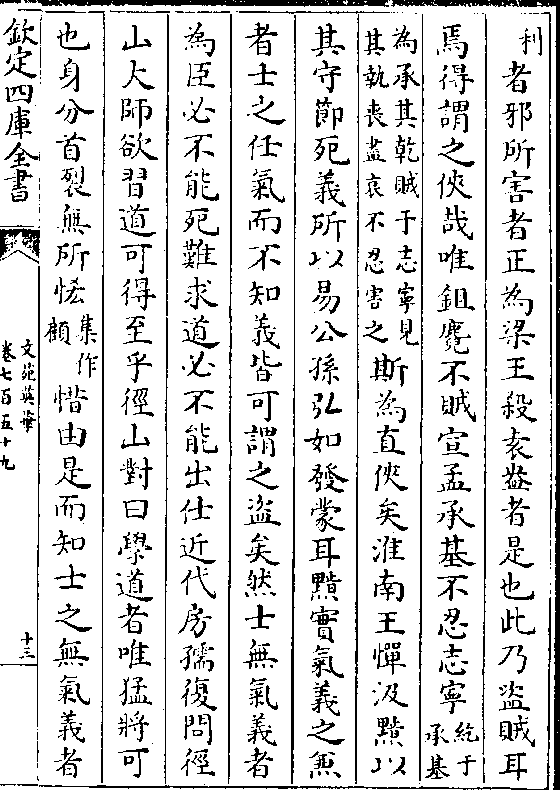 利者邪所害者正為梁王殺袁盎者是也此乃盜賊耳
焉得謂之俠哉唯鉏麑不賊宣孟承基不忍志寧紇于承基
為承其乾賊于志寧見其執喪盡哀不忍害之斯為直俠矣淮南王憚汲黯以
其守節死義所以易公孫弘如發蒙耳黯實氣義之兼
者士之任氣而不知義皆可謂之盜矣然士無氣義者
為臣必不能死難求道必不能出仕近代房孺復問徑
山大師欲習道可得至乎徑山對曰學道者唯猛將可
也身分首裂無所恡集作顧惜由是而知士之無氣義者
欽定四庫全書
文苑英華
卷七百五十九
十三